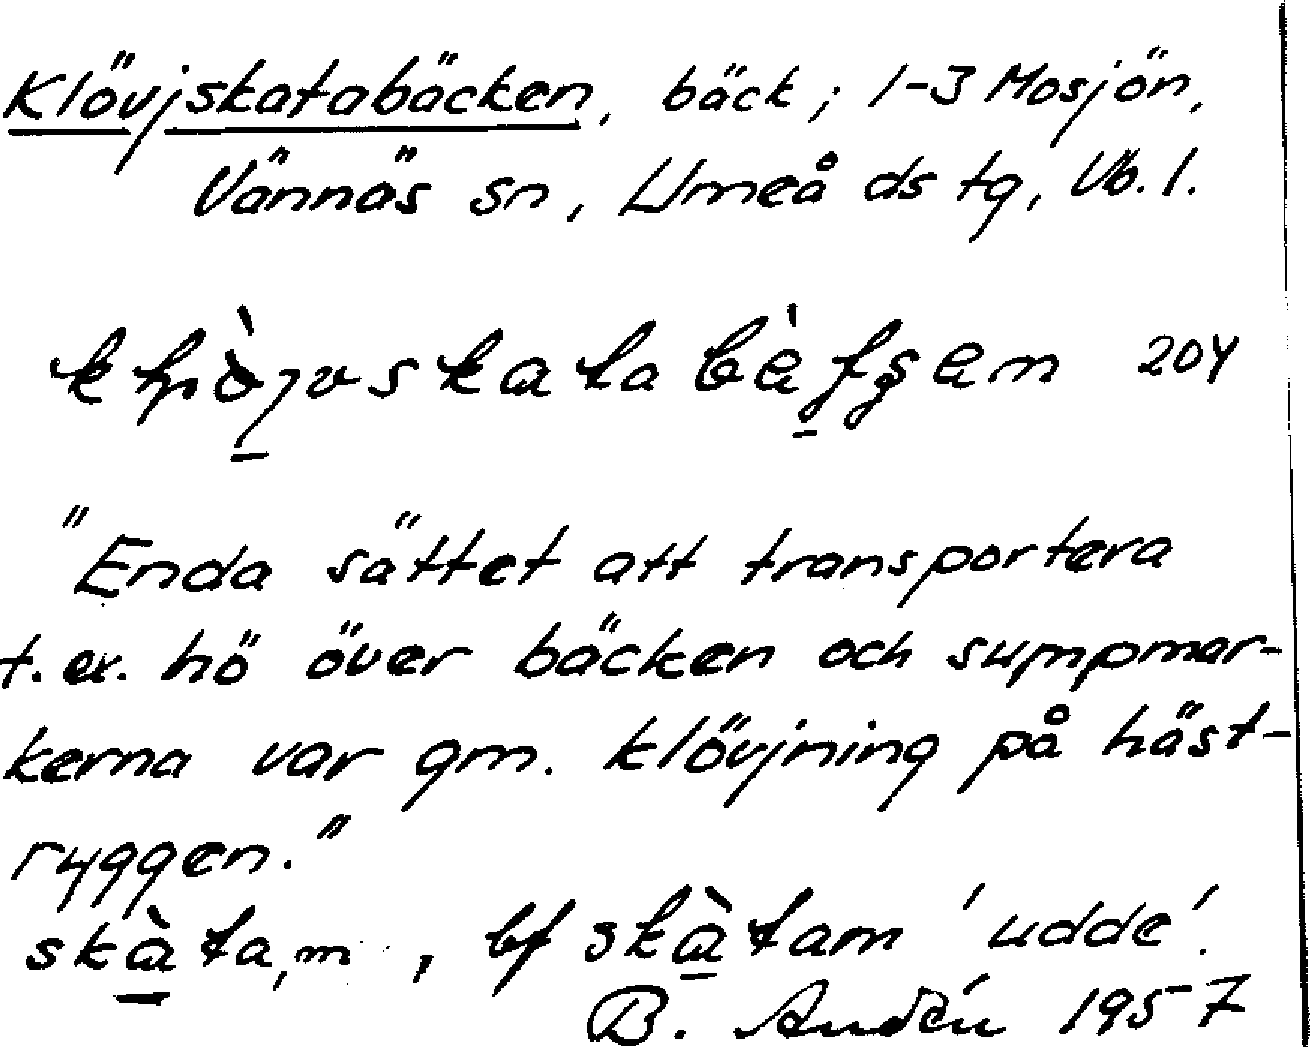 Klövjskatabäcken, bäck; 1-3 Mosjön,
Vännäs sn, Umeå ds tg, Vb. l.
204
"Enda sättet att transportera
t. ex. hö över bäcken och sumpmar-
kerna var gm. klövjning på häst-
ryggen."
skàta, m , bf skàtam 'udde'.
B. Andén 1957